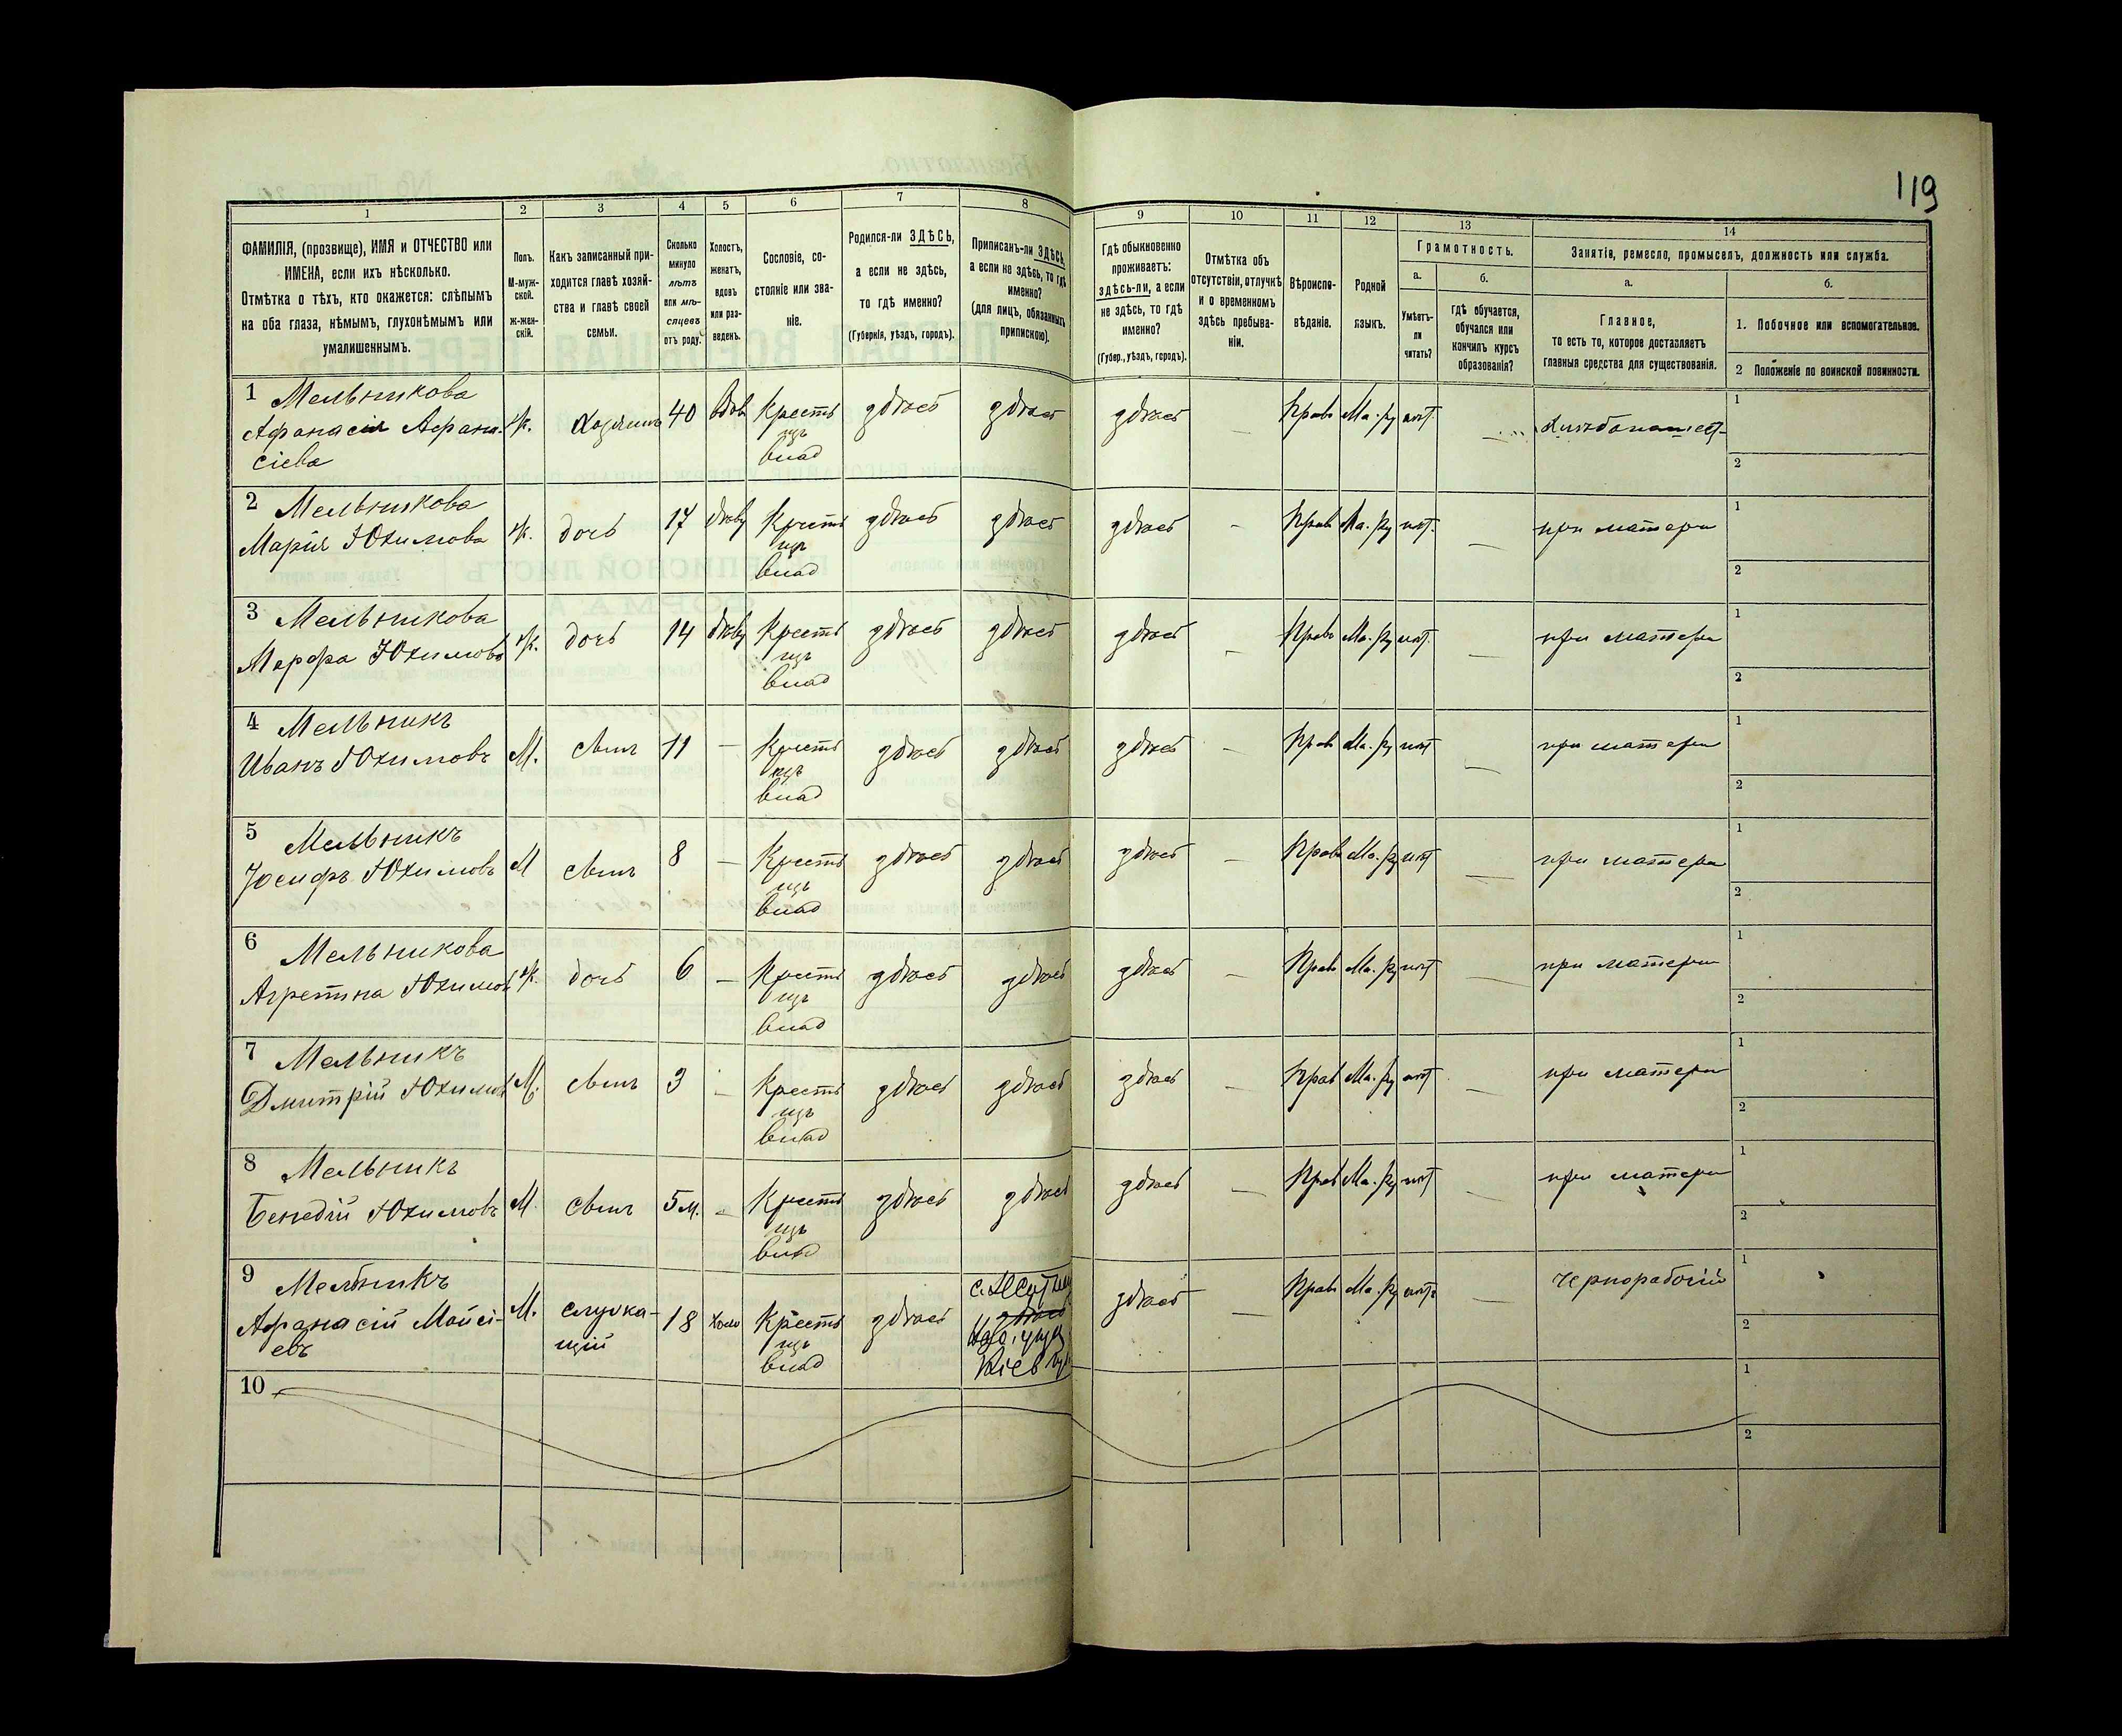 119
1
2
3
4
5
6
7
8
9
10
11
12
13
14
ФАМИЛІЯ, (прозвище), ИМЯ и ОТЧЕСТВО или
ИМЕНА, если ихъ нѣсколько.
Отмѣтка о тѣхъ, кто окажется: слѣпымъ
на оба глаза, нѣмымъ, глухонѣмымъ или
умалишеннымъ.
Полъ.
М-муж-
ской.
ж-жен-
скій.
Какъ записанный при-
ходится главѣ хозяй-
ства и главѣ своей
семьи.
Сколько
минуло
лѣтъ
или мѣ-
сяцевъ
отъ роду.
Холостъ,
женатъ,
вдовъ
или раз-
веденъ.
Сословіе, со-
стояніе или зва-
ніе.
Родился-ли ЗДѢСЬ,
а если не здѣсь,
то гдѣ именно?
(Губернія, уѣздъ, городъ).
Приписанъ-ли ЗДѢСЬ,
а если не здѣсь, то гдѣ
именно?
(для лицъ, обязанныхъ
припискою).
Гдѣ обыкновенно
проживаетъ:
здѣсь-ли, а если
не здѣсь, то гдѣ
именно?
(Губер., уѣздъ, городъ).
Отмѣтка объ
отсутствіи, отлучкѣ
и о временномъ
здѣсь пребыва-
ніи.
Вѣроиспо-
вѣданіе.
Родной
языкъ.
Грамотность.
а.
Умѣетъ-
ли
читать?
б.
гдѣ обучается,
обучался или
кончилъ курсъ
образованія?
Занятія, ремесло, промыселъ, должность или служба.
а.
Главное,
то есть то, которое доставляетъ
главныя средства для существованія.
б.
1. Побочное или вспомогательное.
2 Положеніе по воинской повинности.
1 Мельникова
Афанасія Афана-
сіева
ж. 40 вдов Крестъ здѣсь здѣсь здѣсь Прав Ма. ру нѣт
влад
1
2
2 Мельникова
Марія Юхимова ж. дочь 17 Крестъ здѣсь здѣсь здѣсь Прав Ма. ру нѣт. при матери
влад
1
2
3 Мельникова
Марфа Юхимова ж. дочь 14 Крестъ здѣсь здѣсь здѣсь Прав Ма. ру нѣт. при матери
влад
1
2
4 Мельникъ
Иванъ Юхимовъ М. сынъ 11 – Крестъ здѣсь здѣсь здѣсь – Прав Ма. ру нѣт – при матери
влад
1
2
5 Мельникъ
Іосифъ Юхимовъ М сынъ 8 – Крестъ здѣсь здѣсь здѣсь – Прав Ма. ру нѣт – при матери
влад
1
2
6 Мельникова
Юхимов ж. дочь 6 – Крестъ здѣсь здѣсь здѣсь – Прав Ма. ру нѣт – при матери
влад
1
2
7 Мельникъ
Дмитрій Юхимов М. сынъ 3 – Крестъ здѣсь здѣсь здѣсь – Прав Ма. ру нѣт – при матери
влад
1
2
8 Мельникъ
Юхимовъ М. сынъ 5 м. – Крестъ здѣсь здѣсь здѣсь – Прав Ма. ру нѣт – при матери
влад
1
2
9 Мельникъ
Афанасій Мойсі-
евъ
М. служа-
щій
18 холо Крестъ здѣсь здѣсь – Прав Ма. ру нѣт – чернорабочій
влад
Кіев
1
2
10
1
2